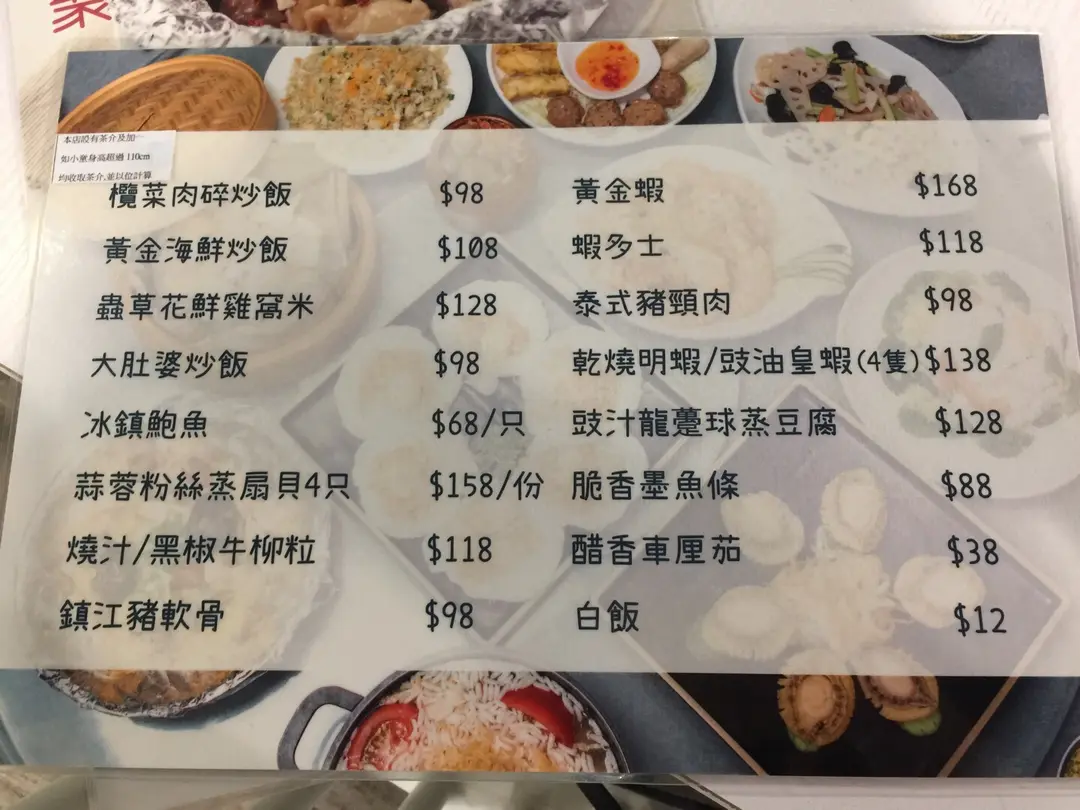 本店設有茶介及加一
如小童身高超過 110cm
均收取茶介,並以位計算
欖菜肉碎炒飯 $98
黃金海鮮炒飯 $108
蟲草花鮮雞窩米 $128
大肚婆炒飯 $98
冰鎮鮑魚 $68/只
蒜蓉粉絲蒸扇貝4只 $158/份
燒汁/黑椒牛柳粒 $118
鎮江豬軟骨 $98
黃金蝦 $168
蝦多士 $118
泰式豬頸肉 $98
乾燒明蝦/豉油皇蝦(4隻) $138
豉汁龍躉球蒸豆腐 $128
脆香墨魚條 $88
醋香車厘茄 $38
白飯 $12